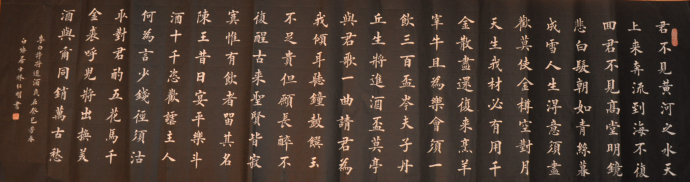 君不見黃河之水天
上來奔流到海不復
回君不見高堂明鏡
悲白髮朝如青絲暮
成雪人生得意須盡
歡莫使金樽空對月
天生我材必有用千
金散盡還復來烹羊
宰牛且為樂會須一
飲三百盃岑夫子丹
丘生將進酒盃莫停
與君歌一曲請君為
我傾耳聽鐘鼓饌玉
不足貴但願長醉不
復醒古來聖賢皆寂
寞惟有飲者留其名
陳王昔日宴平樂斗
酒十千恣歡謔主人
何為言少錢徑須沽
取對君酌五花馬千
金裘呼兒將出換美
酒與爾同銷萬古愁
李白詩將進酒歲在癸巳芳春